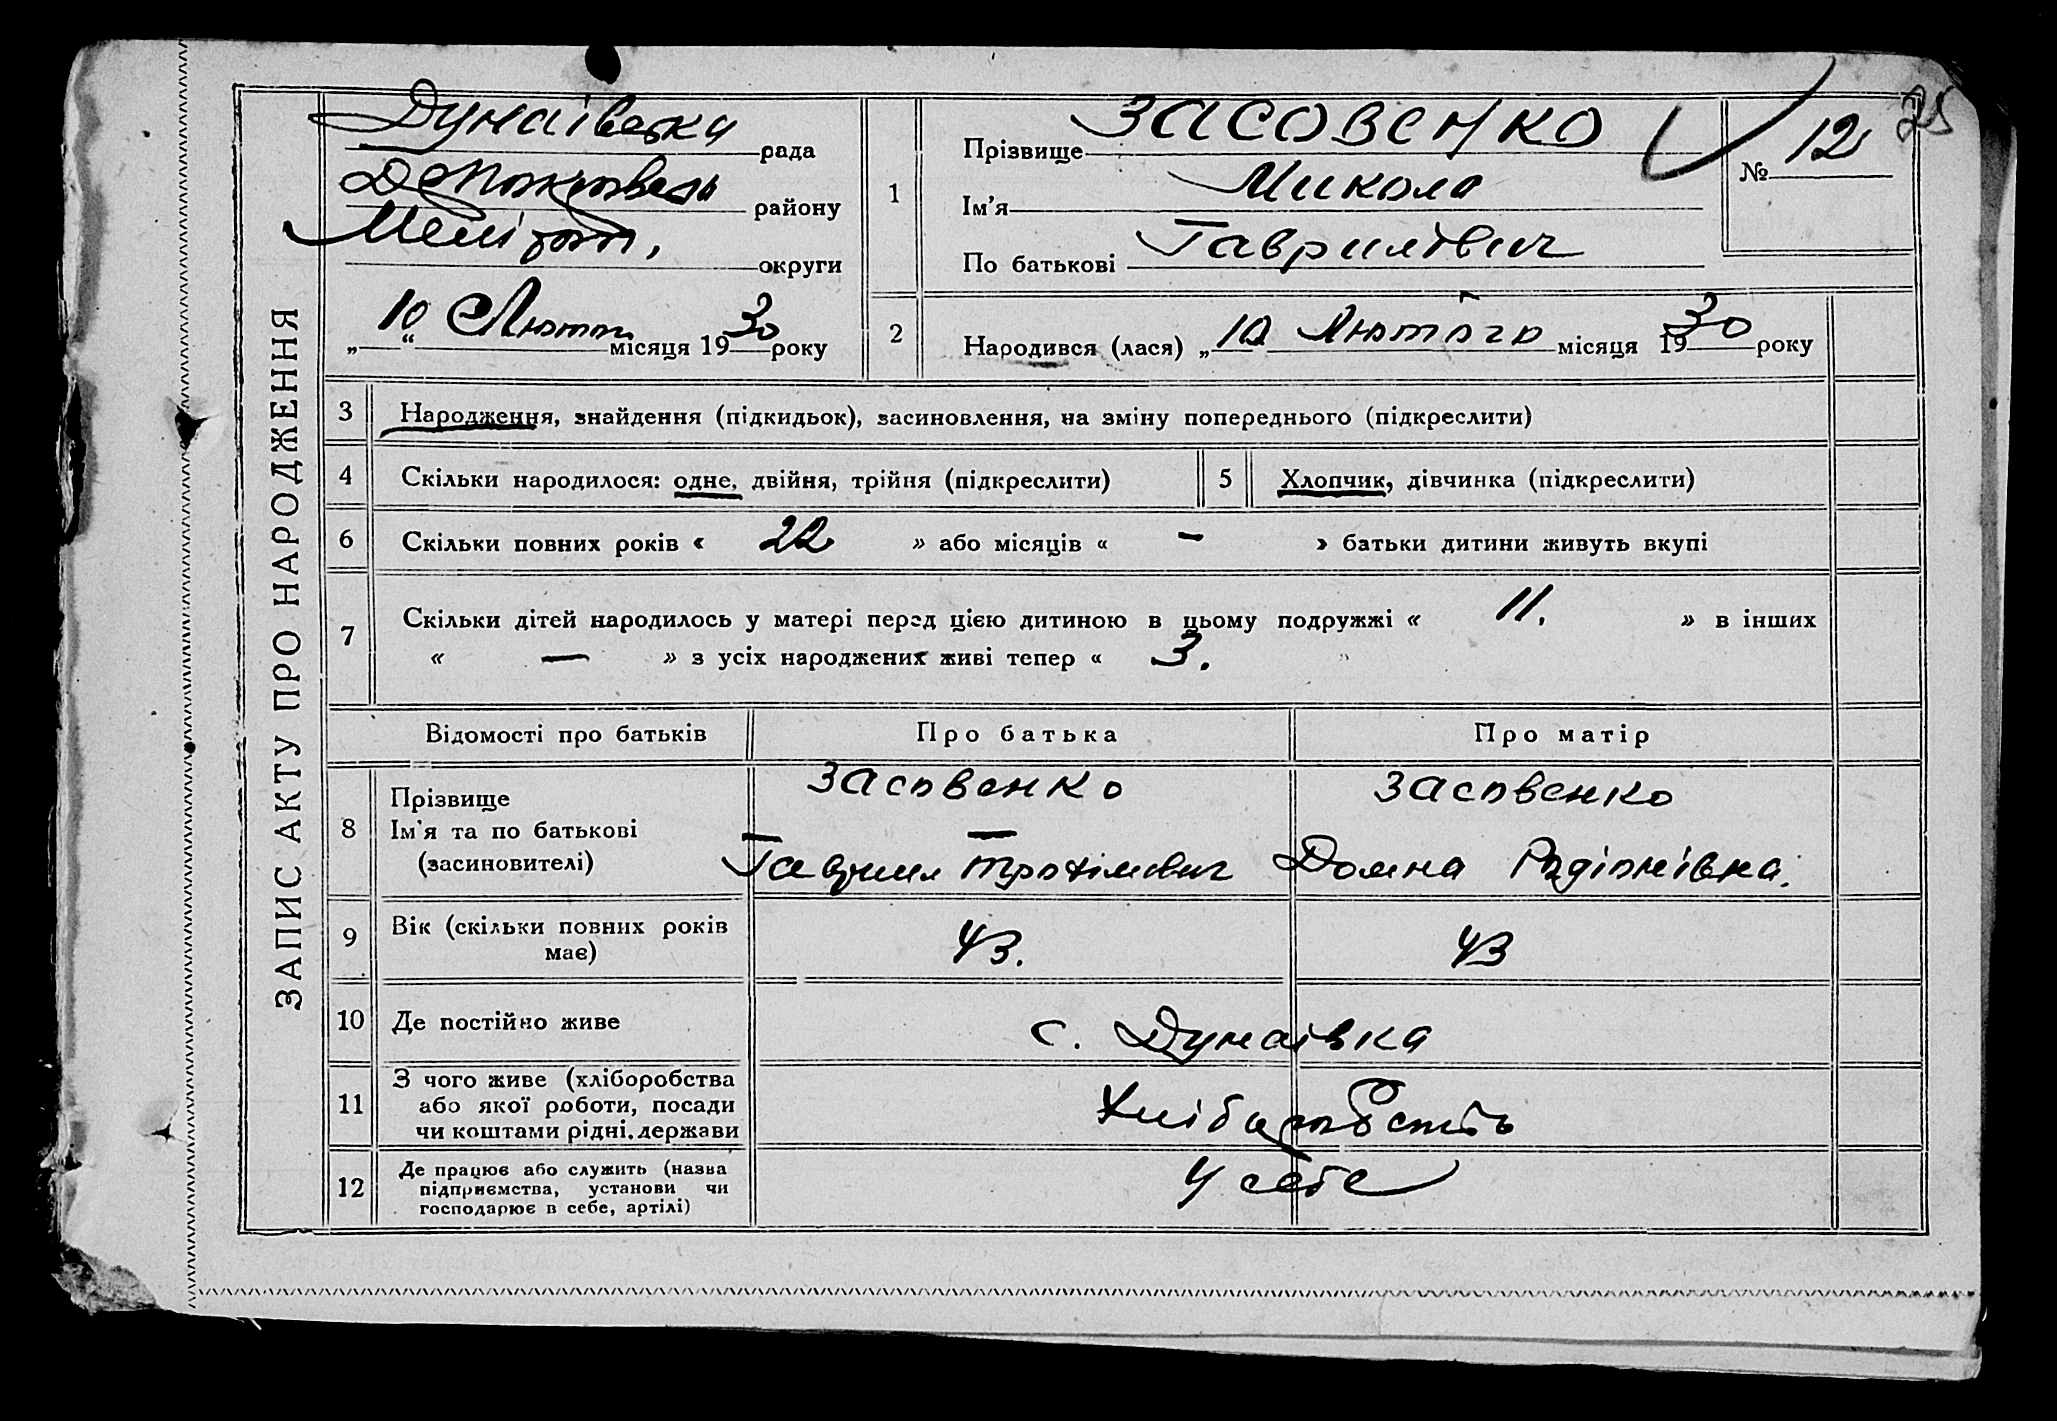 25
ЗАПИС АКТУ ПРО НАРОДЖЕННЯ
Дунаївська рада
району
Мелітоп. округи
„10“ Лютого місяця 1930 року
1
Прізвище Засовенко
Ім’я Микола
По батькові Гаврилович
№ 12
2
Народився (лася) „10 Лютого місяця 1930 року
3 Народження, знайдення (підкидьок), засиновлення, на зміну попереднього (підкреслити)
4 Скільки народилося: одне, двійня, трійня (підкреслити)
5 Хлопчик, дівчинка (підкреслити)
6 Скільки повних років « 22 » або місяців « — » батьки дитини живуть вкупі
7 Скільки дітей народилось у матері перед цією дитиною в цьому подружжі « 11. » в інших
« — » з усіх народжених живі тепер « 3.
Відомості про батьків Про батька Про матір
8 Прізвище
Ім’я та по батькові
(засиновителі)
Засовенко
Гаврило Трохімович
Засовенко
Домна Радіонівна.
9 Вік (скільки повних років
має)
43. 43
10 Де постійно живе с. Дунаівка
11 З чого живе (хліборобства
або якої роботи, посади
чи коштами рідні, держави
12 Де працює або служить (назва
підприємства, установи чи
господарює в себе, артілі)
У себе